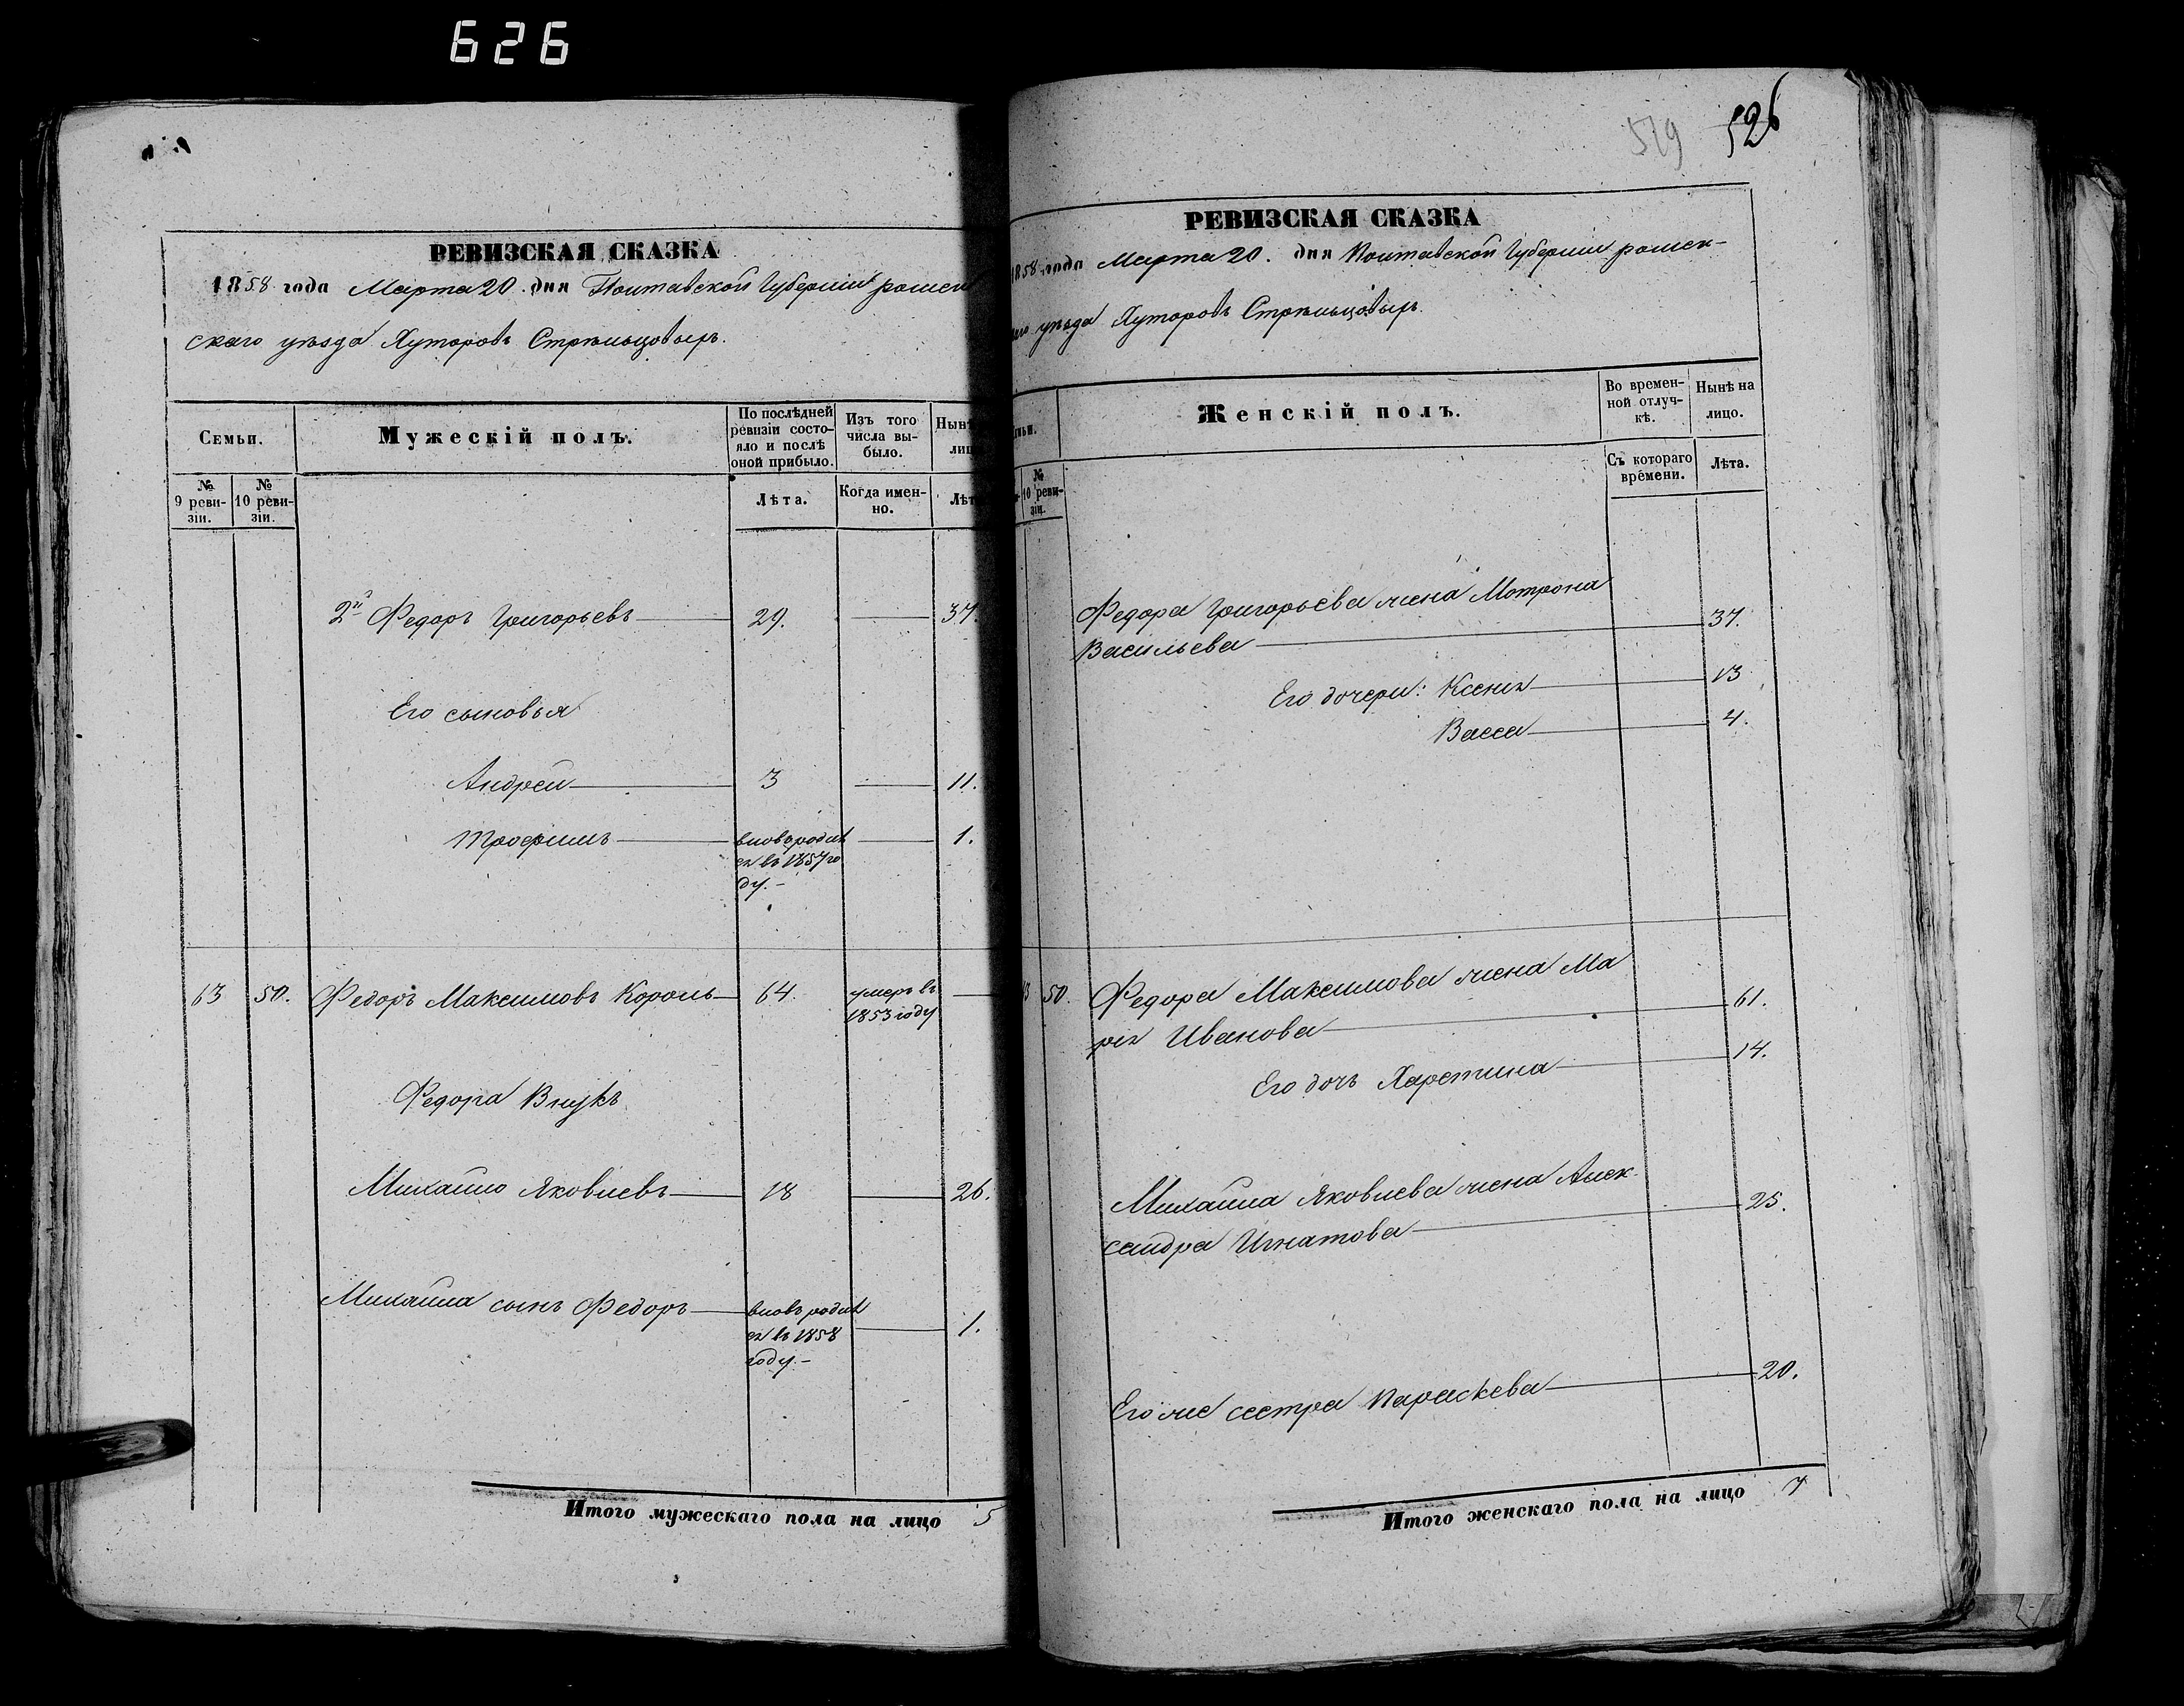 626
РЕВИЗСКАЯ СКАЗКА
1858 года Марта 20. дня Полтавской Губерніи ромен
скаго уѣзда Хуторовъ Стрѣльцовыхъ.
Семьи.
Мужескій полъ.
По послѣдней ревизіи состо-яло и послѣ оной прибыло.
Изъ того числа вы-было.
Нынѣ
лиц
№ 9 реви-зіи.
№ 10 реви-зіи.
Лѣта.
Когда имен-но.
Лѣт
2й Федоръ Григорьевъ 29. 37.
Его сыновья
Андрей 3 11.
Трофимъ вновь родил 1.
ся въ 1857 го
ду.-
63 50. Федоръ Максимовъ Король 64. умеръ въ
1853 году
Федора Внукъ
Михайло Яковлевъ 18 26.
Михайла сынъ Федоръ вновь родил
ся въ 1858 1.
году.-
Итого мужескаго пола на лицо 5
519 526
РЕВИЗСКАЯ СКАЗКА
1858 года Марта 20. дня Полтавской Губерніи ромен-
скаго уѣзда Хуторовъ Стрѣльцовыхъ.
Женскій полъ.
Во времен-ной отлуч-кѣ.
Нынѣ на лицо.
№ 10 реви-зіи.
Съ котораго времени.
Лѣта.
Федора Григорьева жена Мотрона
Васильева 37.
Его дочери: Ксенія 13
Васса 4.
50. Федора Максимова жена Ма
рія Иванова 61.
Его дочь Харетина 14.
Михайла Яковлева жена Алек-
сандра Игнатова 25.
Его же сестра Параскева 20.
Итого женскаго пола на лицо 7